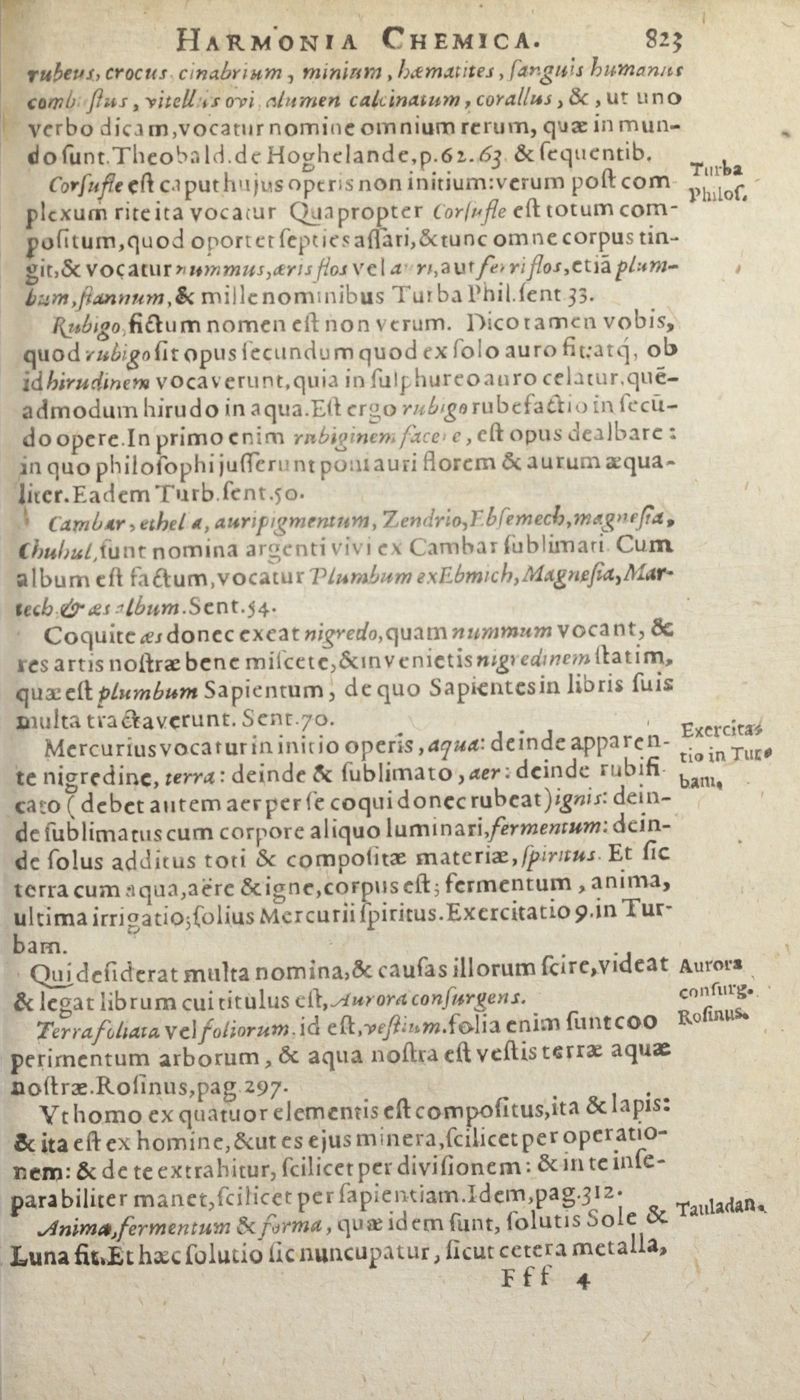 HARMONIA CHEMICA. 823
rubeus, crocus cinabrium, minium, hæmatites, ſanguis humanus
comb⁠uſtus, vitellus ovi alumen calcinatum, corallus, &, ut uno
verbo dicam, vocatur nomine omnium rerum, quæ in mun-
do ſunt. Theobald. de Hoghelande, p. 62. 63. & ſequentib.
Corſufle eſt caput hujus operis non initium: verum poſt com-
Turba
Philoſ.
plexum rite ita vocatur Quapropter Corſufle eſt totum com-
poſitum, quod oportet ſepties aſſari, & tunc omne corpus tin-
git, & vocatur nummus, æris flos vel auri, aut ferri flos, etiã plum-
bum, ſtannum, & mille nominibus Turba Phil. ſent 33.
Rubigo, fictum nomen eſt non verum. Dico tamen vobis,
quod rubigo ſit opus ſecundum quod ex ſolo auro fit: atq́, ob
id hirudinem vocaverunt, quia in ſulphureo auro celatur, quē-
admodum hirudo in aqua. Eſt ergo rubigo rubefactio in ſecū-
do opere. In primo enim rubiginem facere, eſt opus dealbare:
in quo philoſophi juſſerunt poni auri florem & aurum æqua-
liter. Eadem Turb. ſent. 50.
Cambar, ethel a, auripigmentum, Zendrio, Ebſemech, magneſia,
Chuhul, ſunt nomina argenti vivi ex Cambar ſublimati. Cum
album eſt factum, vocatur Plumbum ex Ebmich, Magneſia, Mar-
tech & æs album. Sent. 54.
Coquite æs donec exeat nigredo, quam nummum vocant, &
res artis noſtræ bene miſcete, & invenietis nigredinem ſtatim,
quæ eſt plumbum Sapientum, de quo Sapientes in libris ſuis
multa tractaverunt. Sent. 70.
Mercurius vocatur in initio operis, aqua: deinde apparen-
Exercita-
tio in Tur-
bam.
te nigredine, terra: deinde & ſublimato, aer: deinde rubifi-
cato (debet autem aer per ſe coqui donec rubeat) ignis: dein-
de ſublimatus cum corpore aliquo luminari, fermentum: dein-
de ſolus additus toti & compoſitæ materiæ, ſpiritus. Et ſic
terra cum aqua, aëre & igne, corpus eſt; fermentum, anima,
ultima irrigatio; ſolius Mercurii ſpiritus. Exercitatio 9. in Tur-
bam.
Qui deſiderat multa nomina, & cauſas illorum ſcire, videat
Aurora
conſurg.
& legat librum cui titulus eſt, Aurora conſurgens.
Terra foliata vel foliorum. id eſt, veſtium. folia enim ſunt coo
Roſinus.
perimentum arborum, & aqua noſtra eſt veſtis terræ aquæ
noſtræ. Roſinus, pag 297.
Vt homo ex quatuor elementis eſt compoſitus, ita & lapis:
& ita eſt ex homine, & ut es ejus minera, ſcilicet per operatio-
nem: & de te extrahitur, ſcilicet per diviſionem: & in te inſe-
parabiliter manet, ſcilicet per ſapientiam. Idem, pag. 312.
Anima, fermentum & forma, quæ idem ſunt, ſolutis Sole &
Tauladan.
Luna fit. Et hæc ſolutio ſic nuncupatur, ſicut cetera metalla,
Fff 4